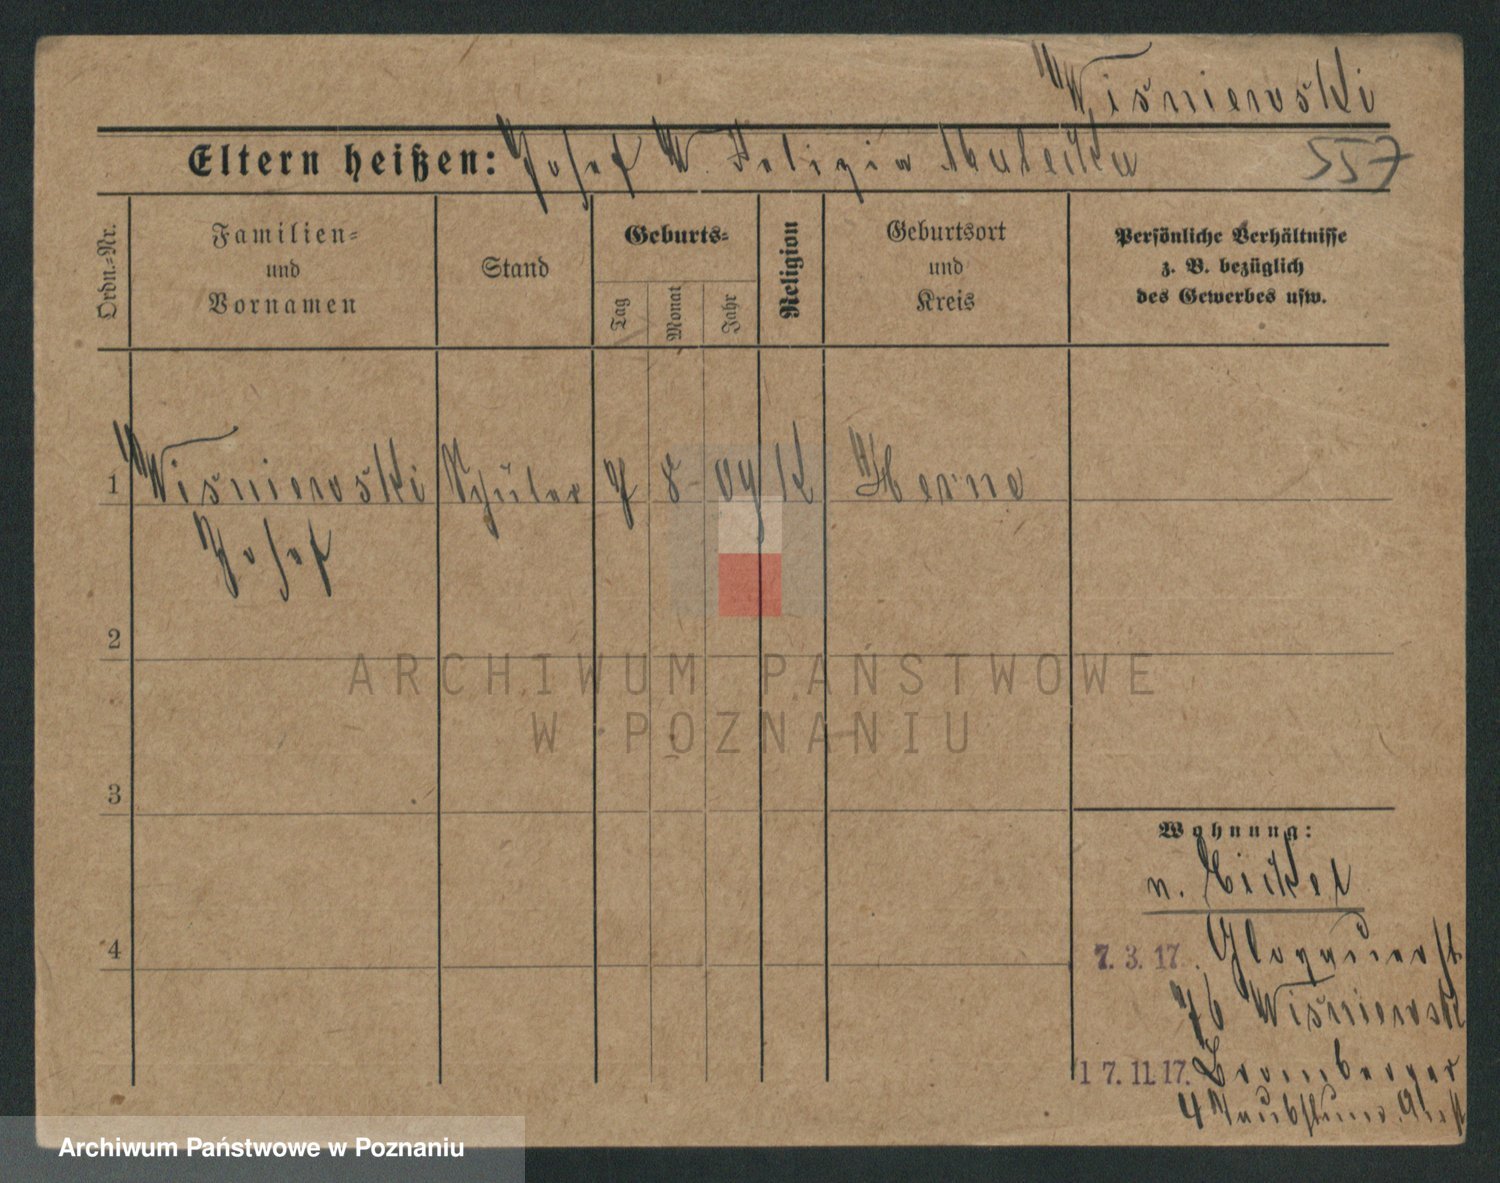 Wiśniewski
Eltern heißen: Josef W. Peligia Małecka
557
Ordn.-Nr.
Familien-
und
Vornamen
Stand
Geburts-
Tag
Monat
Jahr
Religion
Geburtsort
und
Kreis
Persönliche Verhältnisse
z. B. bezüglich
des Gewerbes usw.
1 Wiśniewski Schüler 7 8 09 K Herne
Josef
2
3
4
Wohnung:
n. Eickel
7. 3. 17. Glogauerst
76 Wiśniewsk
17. 11. 17. Bromberger
4 Taubstum. Anst
ARCHIWUM PAŃSTWOWE
W POZNANIU
Archiwum Państwowe w Poznaniu